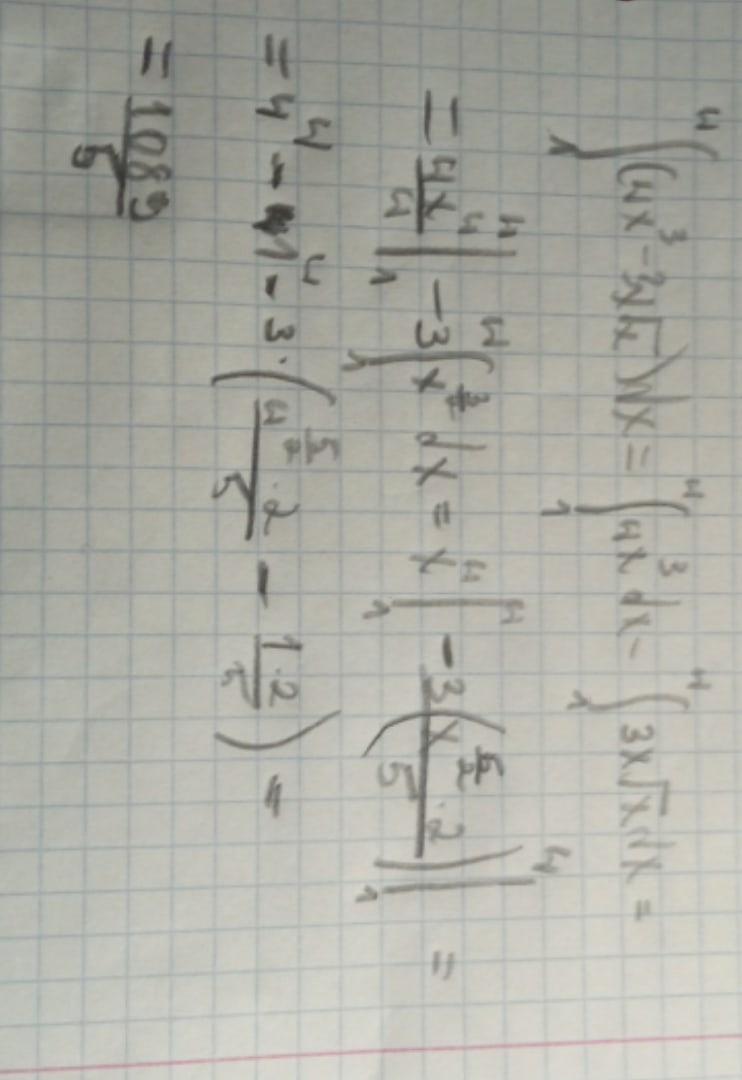 ∫₁⁴ (4x³ - 3x√x) dx = ∫₁⁴ 4x³ dx - ∫₁⁴ 3x√x dx =
= 4x⁴/4 |₁⁴ - 3 ∫₁⁴ x^(3/2) dx = x⁴ |₁⁴ - 3 (x^(5/2) · 2 / 5) |₁⁴ =
= 4⁴ - 1⁴ - 3 · (4^(5/2) · 2 / 5 - 1 · 2 / 5) =
= 1089/5